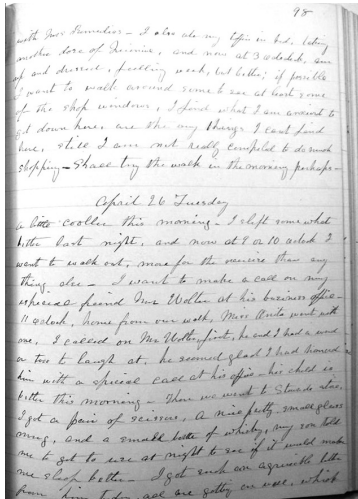 98
with Mrs I also ate my tiffin in bed, taking
another dose of Quinine, and now at 3 oclock, am
up and dressed, feeling weak, but better; if possible
I want to walk around some to see at least some
of the shop windows, I find what I am anxious to
get down here, are the very things I cant find
here, still I am not really compeled to do much
shopping - Shall try the walk in the morning perhaps -
April 26 Tuesday
a little cooller this morning - I slept some what
better last night, and now at 9 or 10 oclock I
want to walk out, more for the exercise than any
thing else - I want to make a call on my
especial friend Mr Wolter at his business office -
11 oclock, home from our walk, Miss went with
me, I called on Mr Wolter first, he and I had a word
or two to laugh at, he seemed glad I had honored
him with a special call at his office - his child is
better this morning - Then we went to store,
I got a pair of scissors, a nice pretty small glass
mug, and a small bottle of whisky, my son told
me to get to use at night to see if it would make
me sleep better - I get such an agreeable letter
from him today, all are getting on well, which